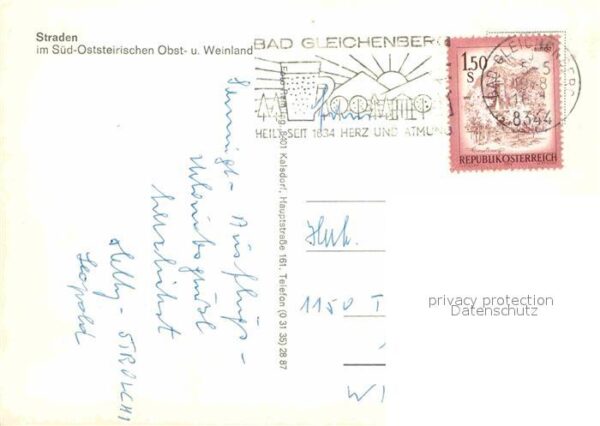 Straden
im Süd-Oststeirischen Obst- u. Weinland
BAD GLEICHENBERG
HEILT SEIT 1834 HERZ UND ATMUNG
8344
1.50
S
REPUBLIK ÖSTERREICH
8401 Kalsdorf, Hauptstraße 161. Telefon (0 31 35) 28 87
Sonnige - Ausflugs -
Urlaubsgrüße
herzlichst
Helly - STROLCHI
Leopold
1150
privacy protection
Datenschutz